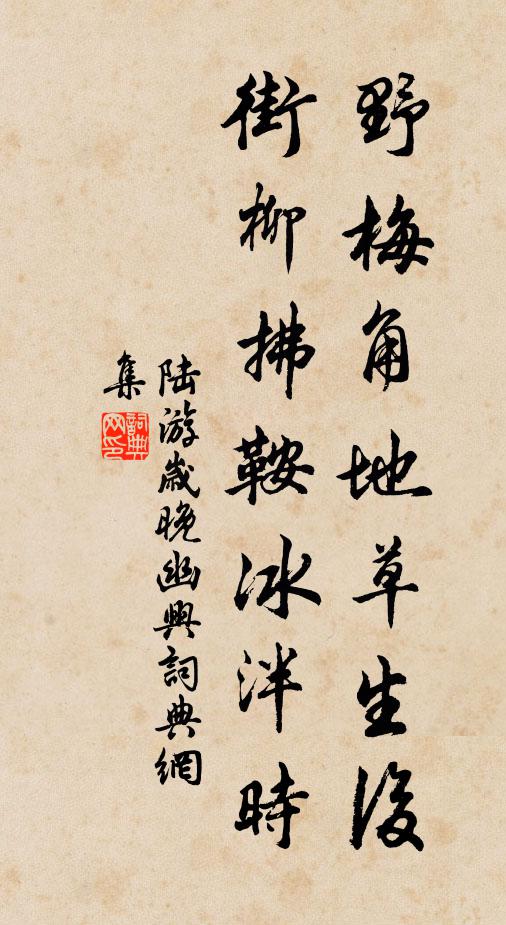 野梅角地草生後
街柳拂鞍冰泮時
陆游歲晚幽興詞典網
集
詞典網印